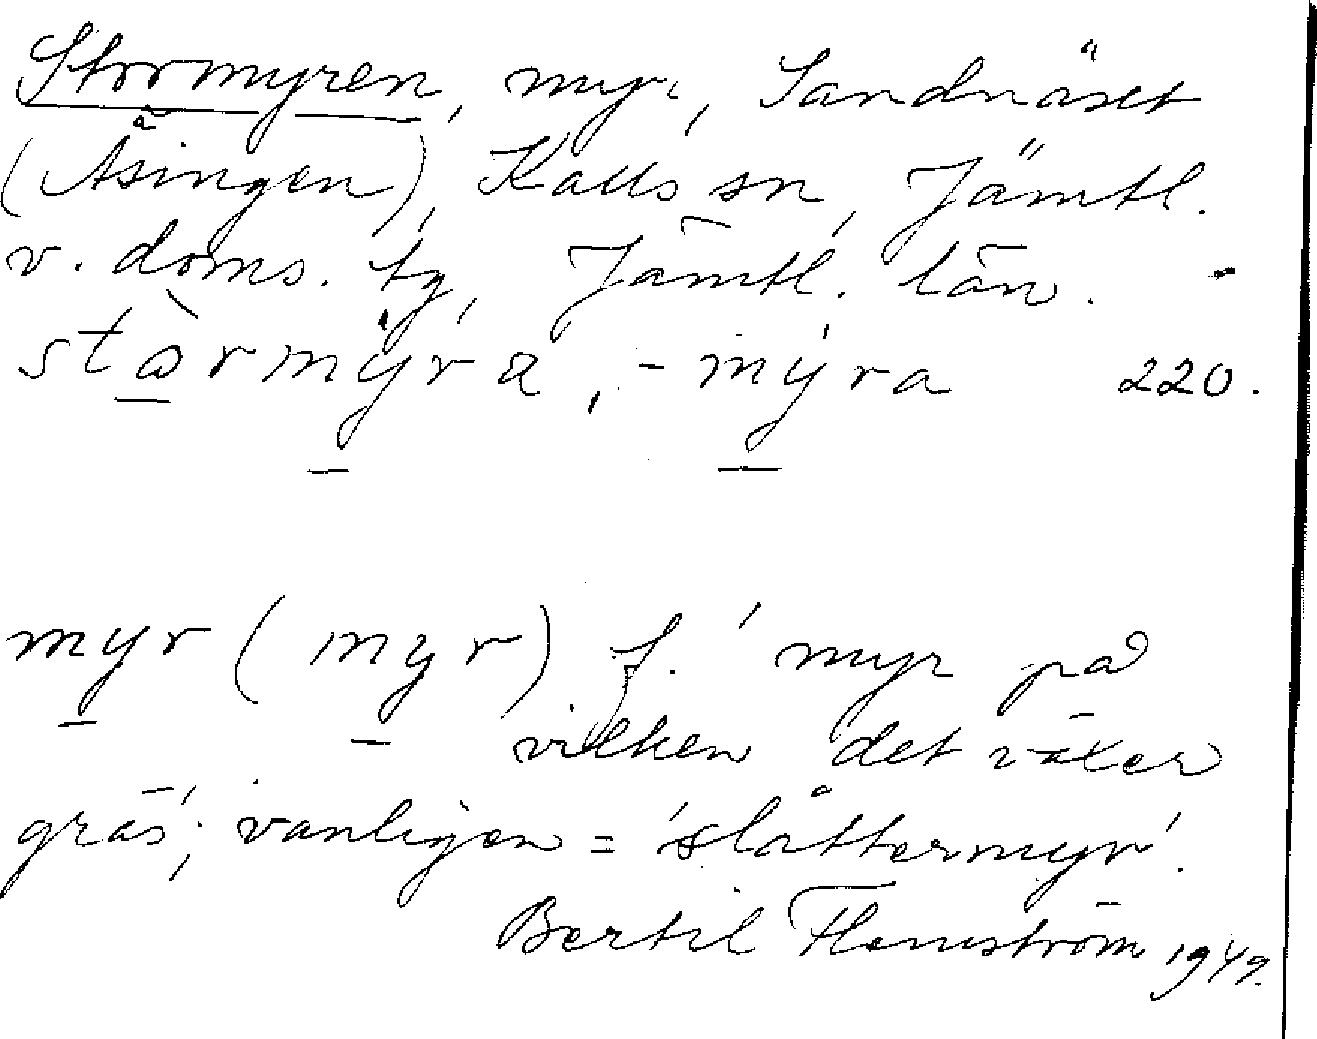 Stormyren, myr, Sandnäset
(Åsingen), Kalls sn, Jämtl.
v. doms. tg, Jämtl. län.
stɷ̀rmỳra, -mýra 220.
myr (myr) f. 'myr på
vilken det växer
gräs'; vanligen = 'slåttermyr'.
Bertil Flemström 1949.